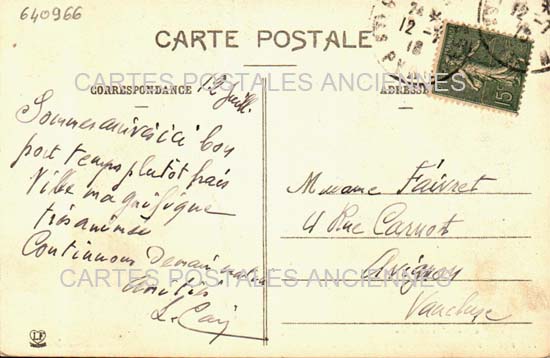 640966
24 *
12 -
18
12 -
CARTE POSTALE
15c
CARTES POSTALES ANCIENNES
CORRESPONDANCE
ADRESSE
12 Juill.
Sommes arrivés ici à bon
port temps plutôt frais
Ville magnifique
très animée
Continuons Demain
Amitiés
Madame Faivret
4 Rue Carnot
Avignon
Vaucluse
CARTES POSTALES ANCIENNES
LF